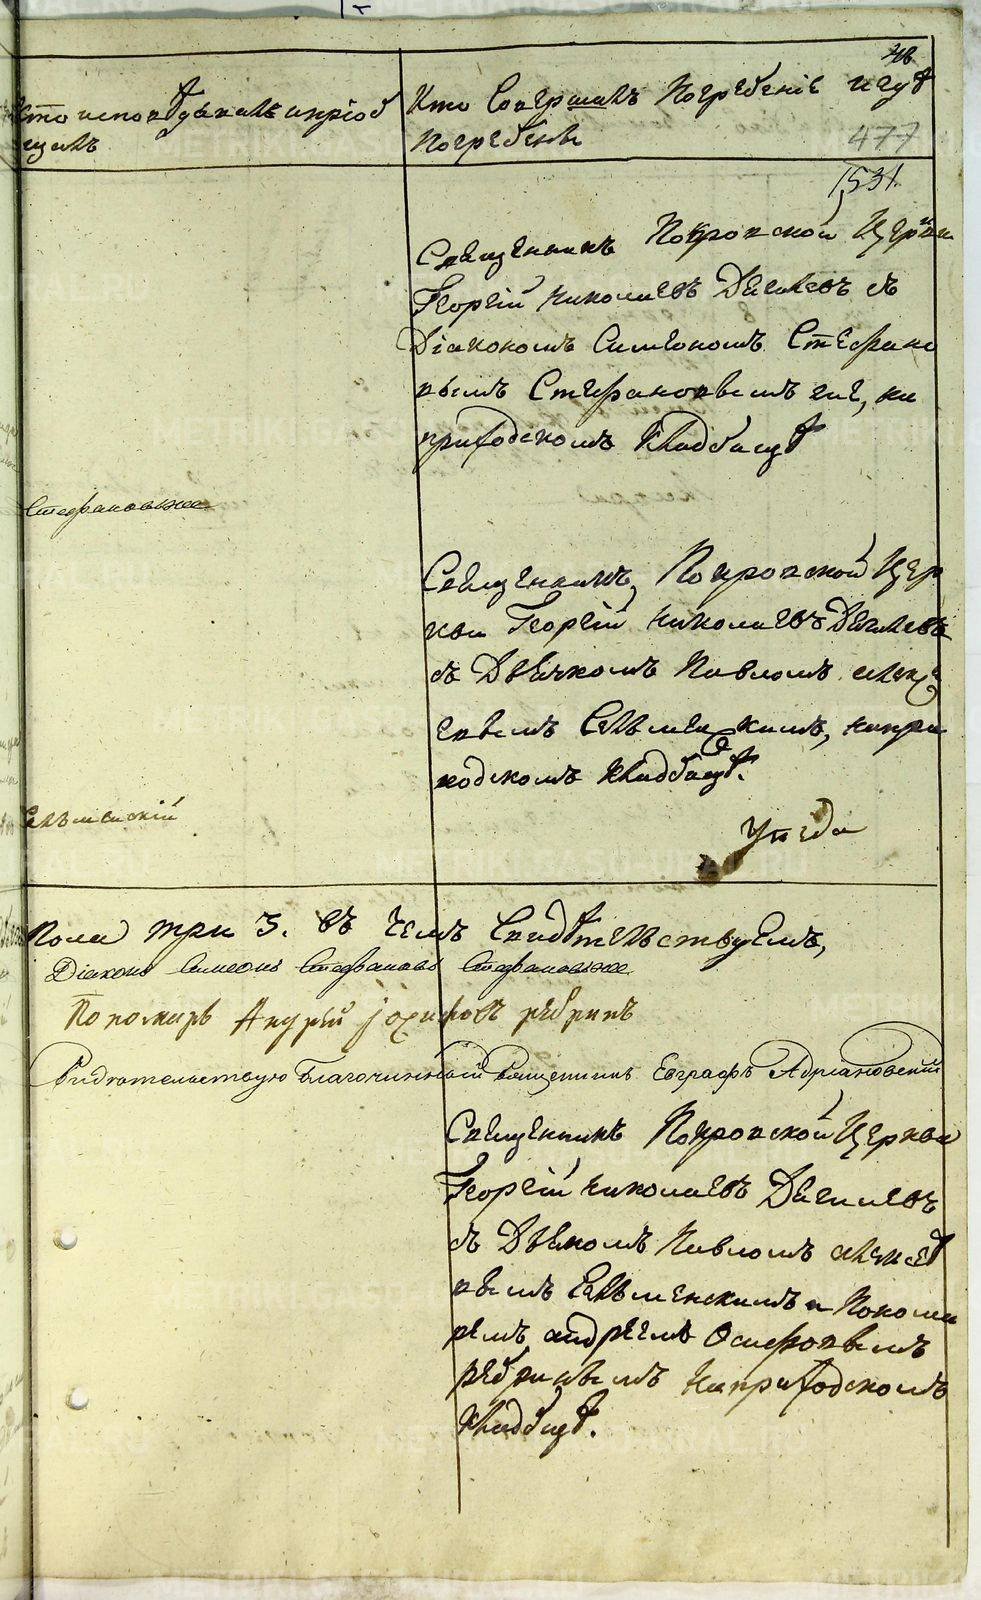 48
Кто исповѣдывалъ и пріоб
щалъ
Кто Совершалъ Погребеніе и гдѣ
Погребены
477
1531.
Священникъ Покровской Церкви
Георгій Николаевъ съ
Діакономъ Симеономъ Стефано
вымъ Стефановымъ же, на
приходскомъ Кладбищѣ
Стефановъ же
Священникъ Покровской Цер
кви Георгій Николаевъ
съ Дьячкомъ Павломъ Алекс
евымъ, на при
ходскомъ Кладбищѣ.
Уѣзда
Пола три 3. въ чемъ Свидѣтельствуемъ,
Діаконъ Симеонъ Стефановъ Стефановъ же
Пономарь Андрей Іосифовъ
Свидѣтельствую Благочинный Священникъ Евграфъ Адріановскій
Священникъ Покровской Церкви
Георгій Николаевъ
съ Дьякомъ Павломъ Алексѣ
вымъ и Понома
ремъ Андреемъ Осиповымъ
на приходскомъ
Кладбищѣ.